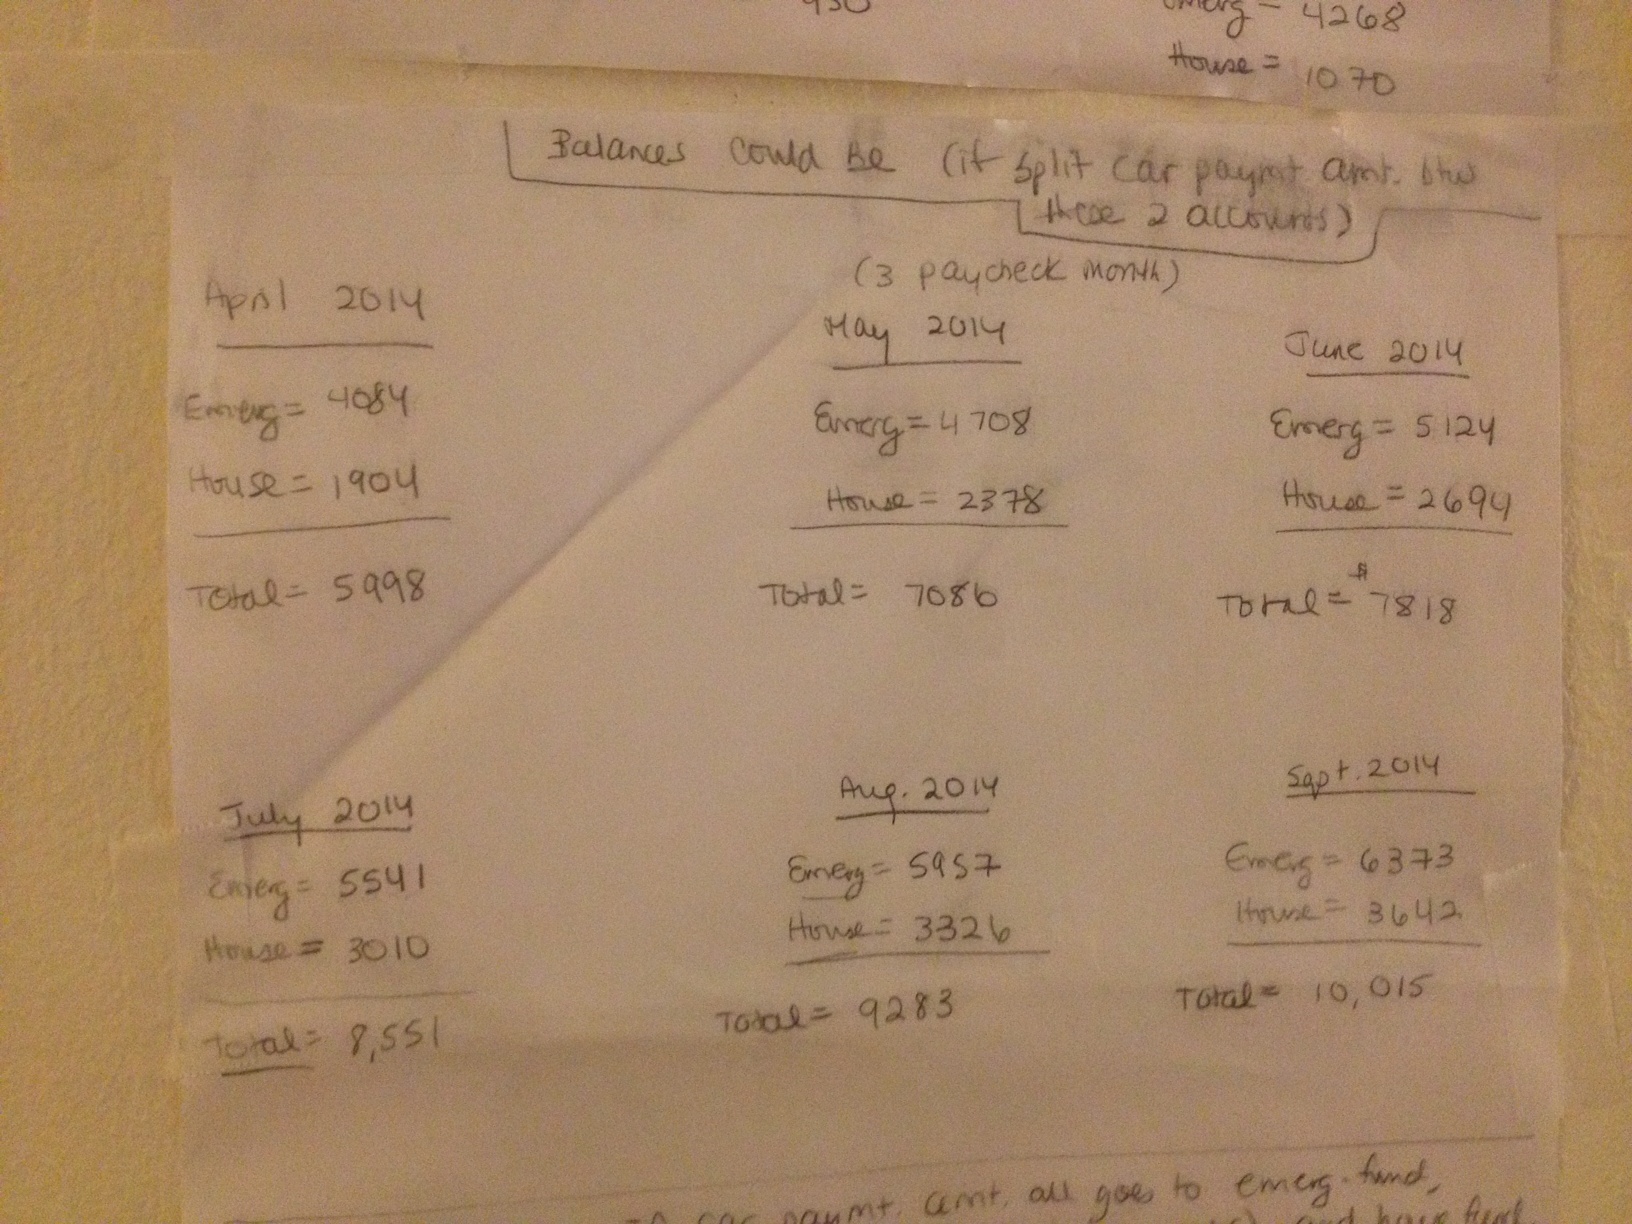 930
Emerg = 4268
House = 1070
Balances could be (if split car paymt amt. btw
these 2 accounts)
(3 paycheck month)
April 2014
Emerg = 4084
House = 1904
Total = 5998
May 2014
Emerg = 4708
House = 2378
Total = 7086
June 2014
Emerg = 5124
House = 2694
Total = $7818
July 2014
Emerg = 5541
House = 3010
Total = 8,551
Aug. 2014
Emerg = 5957
House = 3326
Total = 9283
Sept. 2014
Emerg = 6373
House = 3642
Total = 10,015
car paymt. amt. all goes to emerg. fund,
and have